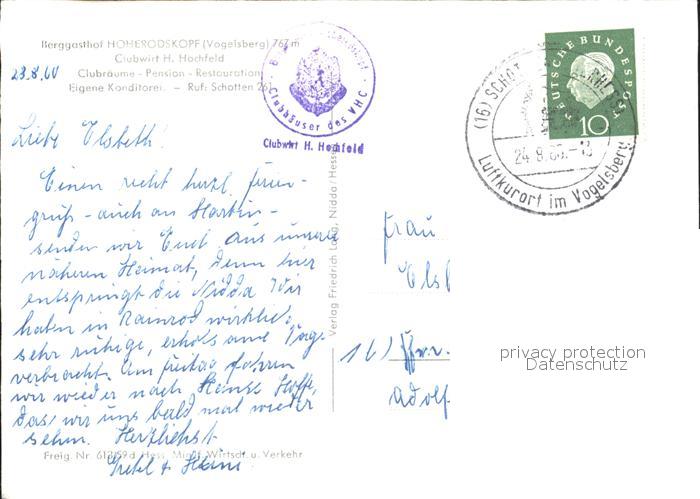 Berggasthof HOHERODSKOPF (Vogelsberg) 767 m
Clubwirt H. Hochfeld
Clubräume - Pension - Restauration
Eigene Konditorei. - Ruf: Schotten
23.8.60
Clubhäuser des VHC
Clubwirt H. Hochfeld
DEUTSCHE BUNDESPOST
10
(16) SCHOT
24.8.60.-13
Luftkurort im Vogelsberg
Liebe Elsbeth!
Einen recht herzl. Ferien-
gruß - auch an Martin -
senden wir Euch aus unserer
näheren Heimat, denn hier
entspringt die Nidda. Wir
haben in Rainrod wirklich
sehr ruhige, erholsame Tage
verbracht. Am Freitag fahren
wir wieder nach Hause. Hoffe,
das wir uns bald mal wieder
sehn. Herzlichst
Gretel + Heini
Verlag Friedrich Lang, Nidda/Hessen
Frau
Elsb
16) Ffm.
Adolf
privacy protection
Datenschutz
Freig. Nr 612/59 d. Hess. Min. f. Wirtsch. u. Verkehr